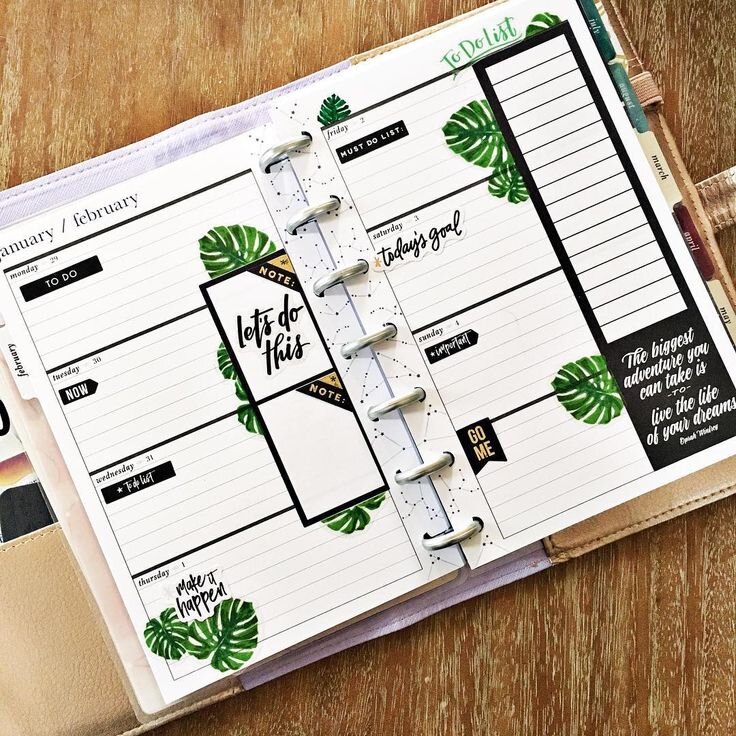 january / february
monday 29
TO DO
tuesday 30
NOW
wednesday 31
To do list
thursday 1
make it
happen
NOTE:
let's do
this
NOTE:
friday 2
MUST DO LIST:
saturday 3
today's goal
sunday 4
important
GO
ME
To Do List
The biggest
adventure you
can take is
-TO-
live the life
of your dreams
Oprah Winfrey
february
july
august
march
april
may